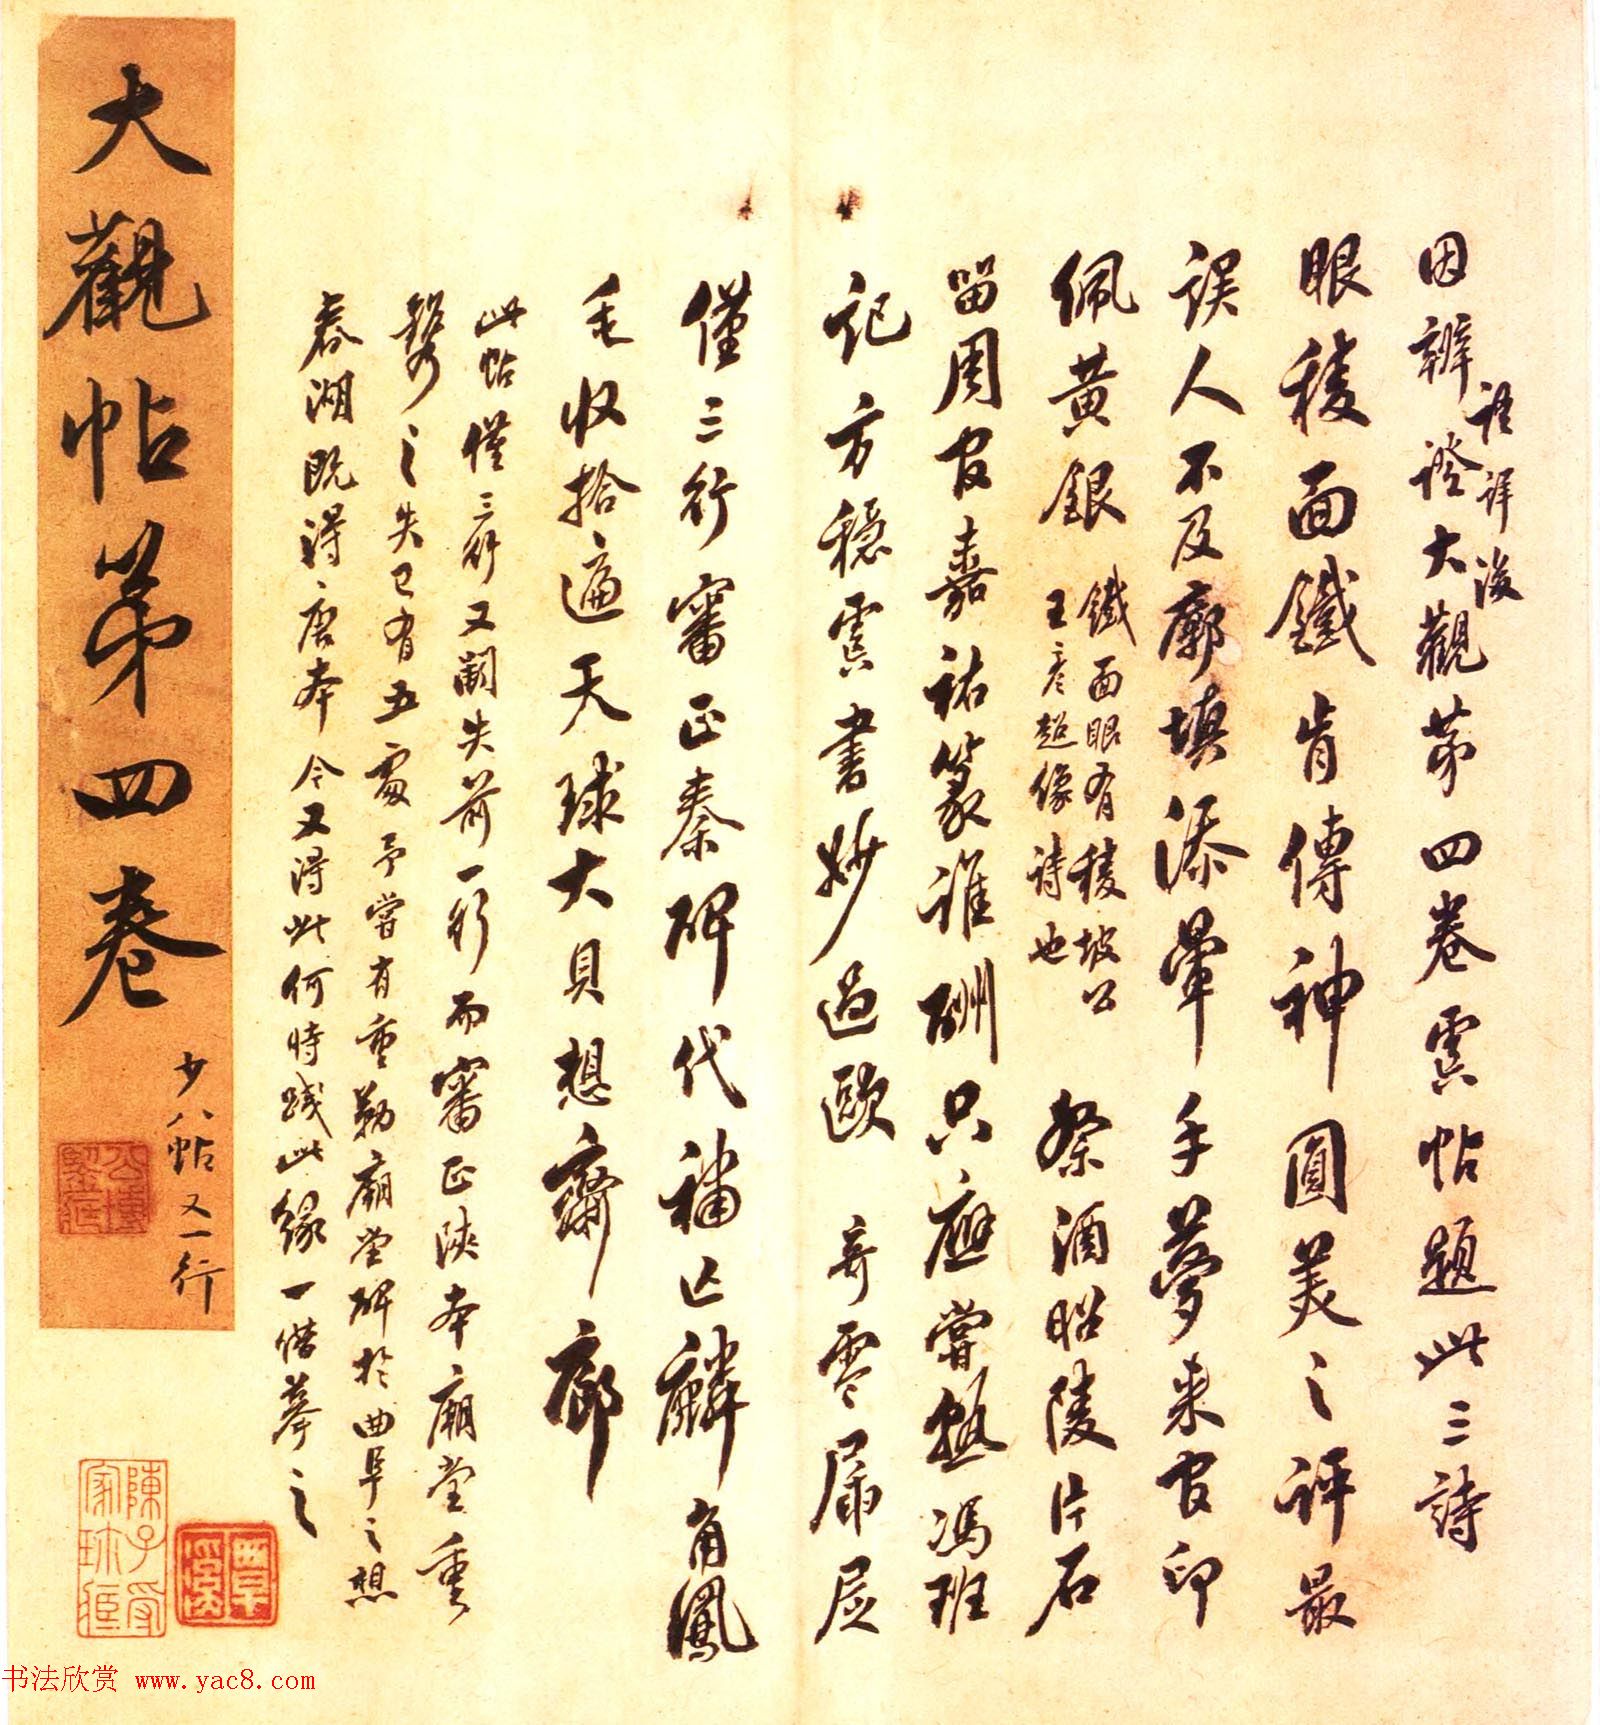 因辨證大觀第四卷虞帖題此三詩
語詳後
眼稜面鐵肯傳神圓美之評最
誤人不及廓填添暈手夢來官印
佩黃銀
鐵面眼有稜坡公
王彥超像詩也
祭酒昭陵片石
留周官嘉祐篆誰酬只應嘗執馮班
記方穩虞書妙過歐 奇零屬
僅三行審正秦碑代補亡麟角鳳
毛收拾遍天球大貝想齋廊
此帖僅三行又闕失前一行而審正陝本廟堂重
之失已有五處予嘗有重勒廟堂碑於曲阜之想
春湖既得唐本今又得此何時踐此緣一借摹之
大觀帖第四卷
少八帖又一行
陳子受
家珍藏
书法欣赏 www.yac8.com